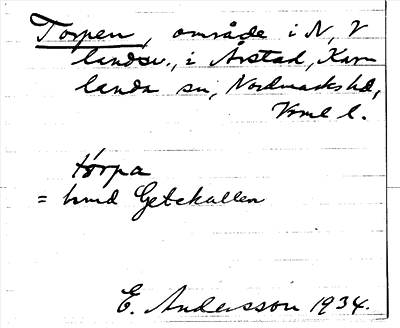 Torpen, område i N, V
landsv., i Årstad, Karl
landa sn, Nordmarks hd,
Vrml l.
tórpa
= hmd Getekallen
E. Andersson 1934.